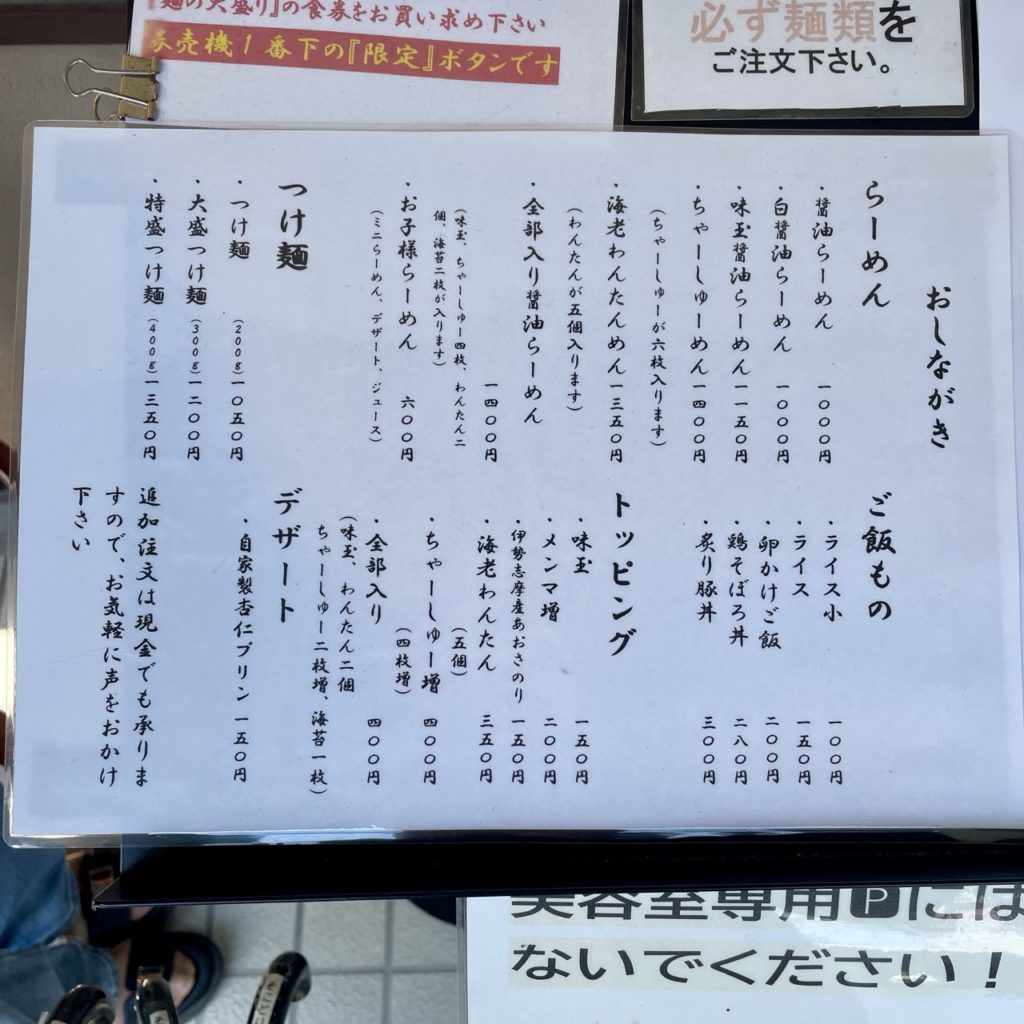 『麺の大盛り』の食券をお買い求め下さい
券売機1番下の『限定』ボタンです
必ず麺類を
ご注文下さい。
おしながき
らーめん
・醤油らーめん 一〇〇〇円
・白醤油らーめん 一〇〇〇円
・味玉醤油らーめん 一一五〇円
・ちゃーしゅーめん 一四〇〇円
(ちゃーしゅーが六枚入ります)
・海老わんたんめん 一三五〇円
(わんたんが五個入ります)
・全部入り醤油らーめん
一四〇〇円
(味玉、ちゃーしゅー四枚、わんたん二
個、海苔二枚が入ります)
・お子様らーめん 六〇〇円
(ミニらーめん、デザート、ジュース)
つけ麺
・つけ麺 (200g) 一〇五〇円
・大盛つけ麺 (300g) 一二〇〇円
・特盛つけ麺 (400g) 一三五〇円
ご飯もの
・ライス小 一〇〇円
・ライス 一五〇円
・卵かけご飯 二〇〇円
・鶏そぼろ丼 二八〇円
・炙り豚丼 三〇〇円
トッピング
・味玉 一五〇円
・メンマ増 二〇〇円
・伊勢志摩産あおさのり 一五〇円
・海老わんたん 三五〇円
(五個)
・ちゃーしゅー増 四〇〇円
(四枚増)
・全部入り 四〇〇円
(味玉、わんたん二個
ちゃーしゅー二枚増、海苔一枚)
デザート
・自家製杏仁プリン 一五〇円
追加注文は現金でも承りま
すので、お気軽に声をおかけ
下さい
美容室専用Pには
ないでください!